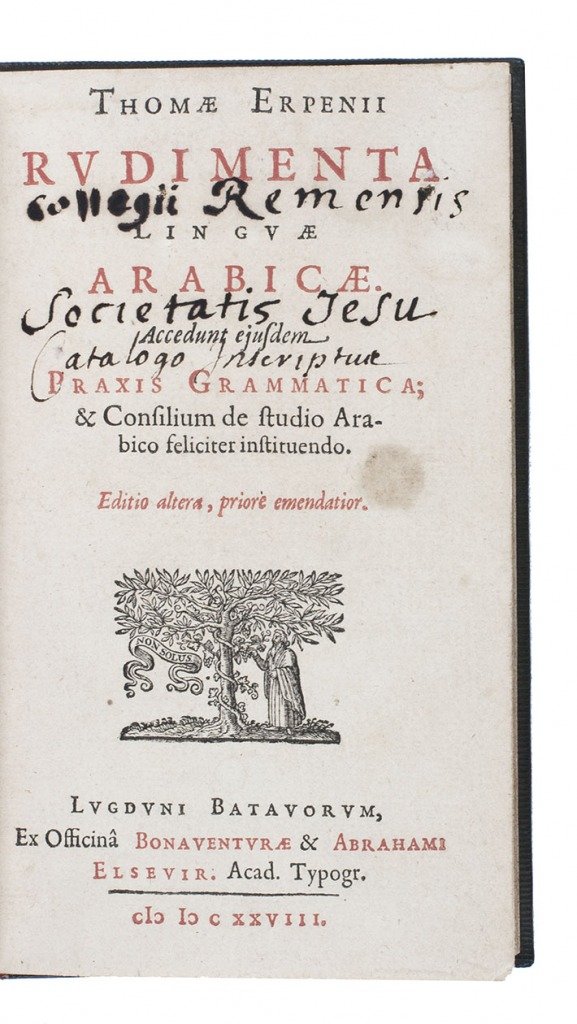 THOMÆ ERPENII
RVDIMENTA
collegii Remensis
LINGVÆ
ARABICÆ.
Societatis Jesu
Accedunt ejuſdem
Catalogo Inscriptus
PRAXIS GRAMMATICA;
& Conſilium de ſtudio Ara-
bico feliciter inſtituendo.
Editio altera, priore emendatior.
NON SOLUS
LVGDVNI BATAVORVM,
Ex Officinâ BONAVENTVRÆ & ABRAHAMI
ELSEVIR. Acad. Typogr.
cIↄ Iↄ C XXVIII.